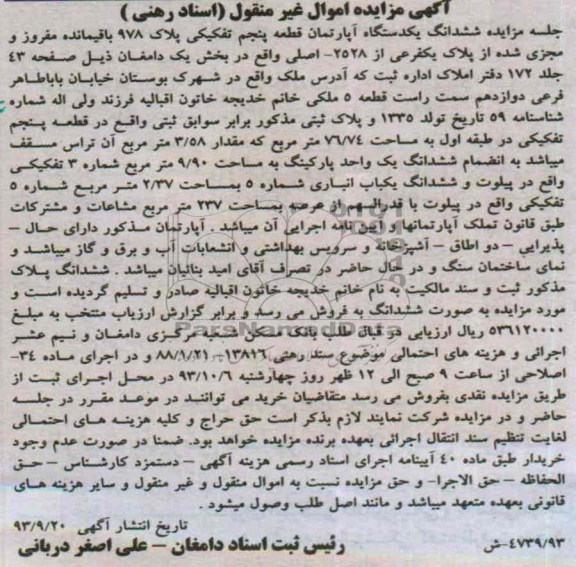 آگهی مزایده اموال غیر منقول (اسناد رهنی)
جلسه مزایده ششدانگ یکدستگاه آپارتمان قطعه پنجم تفکیکی پلاک ۹۷۸ باقیمانده مفروز و
مجزی شده از پلاک یکفرعی از ۲۵۲۸- اصلی واقع در بخش یک دامغان ذیل صفحه ۴۳
جلد ۱۷۲ دفتر املاک اداره ثبت که آدرس ملک واقع در شهرک بوستان خیابان باباطاهر
فرعی دوازدهم سمت راست قطعه ۵ ملکی خانم خدیجه خاتون اقبالیه فرزند ولی اله شماره
شناسنامه ۵۹ تاریخ تولد ۱۳۳۵ و پلاک ثبتی مذکور برابر سوابق ثبتی واقع در قطعه پنجم
تفکیکی در طبقه اول به مساحت ۷۶/۷۴ متر مربع که مقدار ۳/۵۸ متر مربع آن تراس مسقف
میباشد به انضمام ششدانگ یک واحد پارکینگ به مساحت ۹/۹۰ متر مربع شماره ۳ تفکیکی
واقع در پیلوت و ششدانگ یکباب انباری شماره ۵ بمساحت ۲/۳۷ متر مربع شماره ۵
تفکیکی واقع در پیلوت با قدرالسهم از عرصه بمساحت ۲۳۷ متر مربع مشاعات و مشترکات
طبق قانون تملک آپارتمانها و آیین نامه اجرایی آن میباشد . آپارتمان مذکور دارای حال –
پذیرایی – دو اطاق – آشپزخانه و سرویس بهداشتی و انشعابات آب و برق و گاز میباشد و
نمای ساختمان سنگ و در حال حاضر در تصرف آقای امید بنائیان میباشد . ششدانگ پلاک
مذکور ثبت و سند مالکیت به نام خانم خدیجه خاتون اقبالیه صادر و تسلیم گردیده است و
مورد مزایده به صورت ششدانگ به فروش می رسد و برابر گزارش ارزیاب منتخب به مبلغ
۵۳۶۱۲۰۰۰۰ ریال ارزیابی در قبال طلب بانک مسکن شعبه مرکزی دامغان و نیم عشر
اجرائی و هزینه های احتمالی موضوع سند رهنی ۱۳۸۱۶–۸۸/۱/۲۱ و در اجرای ماده ۳۴-
اصلاحی از ساعت ۹ صبح الی ۱۲ ظهر روز چهارشنبه ۹۳/۱۰/۶ در محل اجرای ثبت از
طریق مزایده نقدی بفروش می رسد متقاضیان خرید می توانند در موعد مقرر در جلسه
حاضر و در مزایده شرکت نمایند لازم بذکر است حق حراج و کلیه هزینه های احتمالی
لغایت تنظیم سند انتقال اجرائی بعهده برنده مزایده خواهد بود. ضمنا در صورت عدم وجود
خریدار طبق ماده ۴۰ آیینامه اجرای اسناد رسمی هزینه آگهی – دستمزد کارشناس – حق
الحفاظه – حق الاجرا- و حق مزایده نسبت به اموال منقول و غیر منقول و سایر هزینه های
قانونی بعهده متعهد میباشد و مانند اصل طلب وصول میشود .
تاریخ انتشار آگهی ۹۳/۹/۲۰
۴۷۳۹/۹۳-ش رئیس ثبت اسناد دامغان – علی اصغر دربانی
ParsNamadData